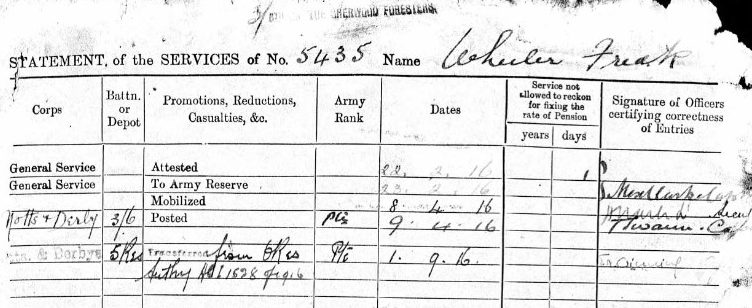 SHERWOOD FORESTERS
STATEMENT of the SERVICES of No. 5435 Name Wheeler Frank
Corps
Battn. or Depot
Promotions, Reductions, Casualties, &c.
Army Rank
Dates
Service not allowed to reckon for fixing the rate of Pension
years days
Signature of Officers certifying correctness of Entries
General Service Attested 22. 2. 16 1
General Service To Army Reserve 23. 2. 16
Mobilized 8 4 16
Notts & Derby 3/6 Posted Pte 9. 4. 16
& Derbys 5 Res Transferred from 6 Res Pte 1. 9. 16.
Authy